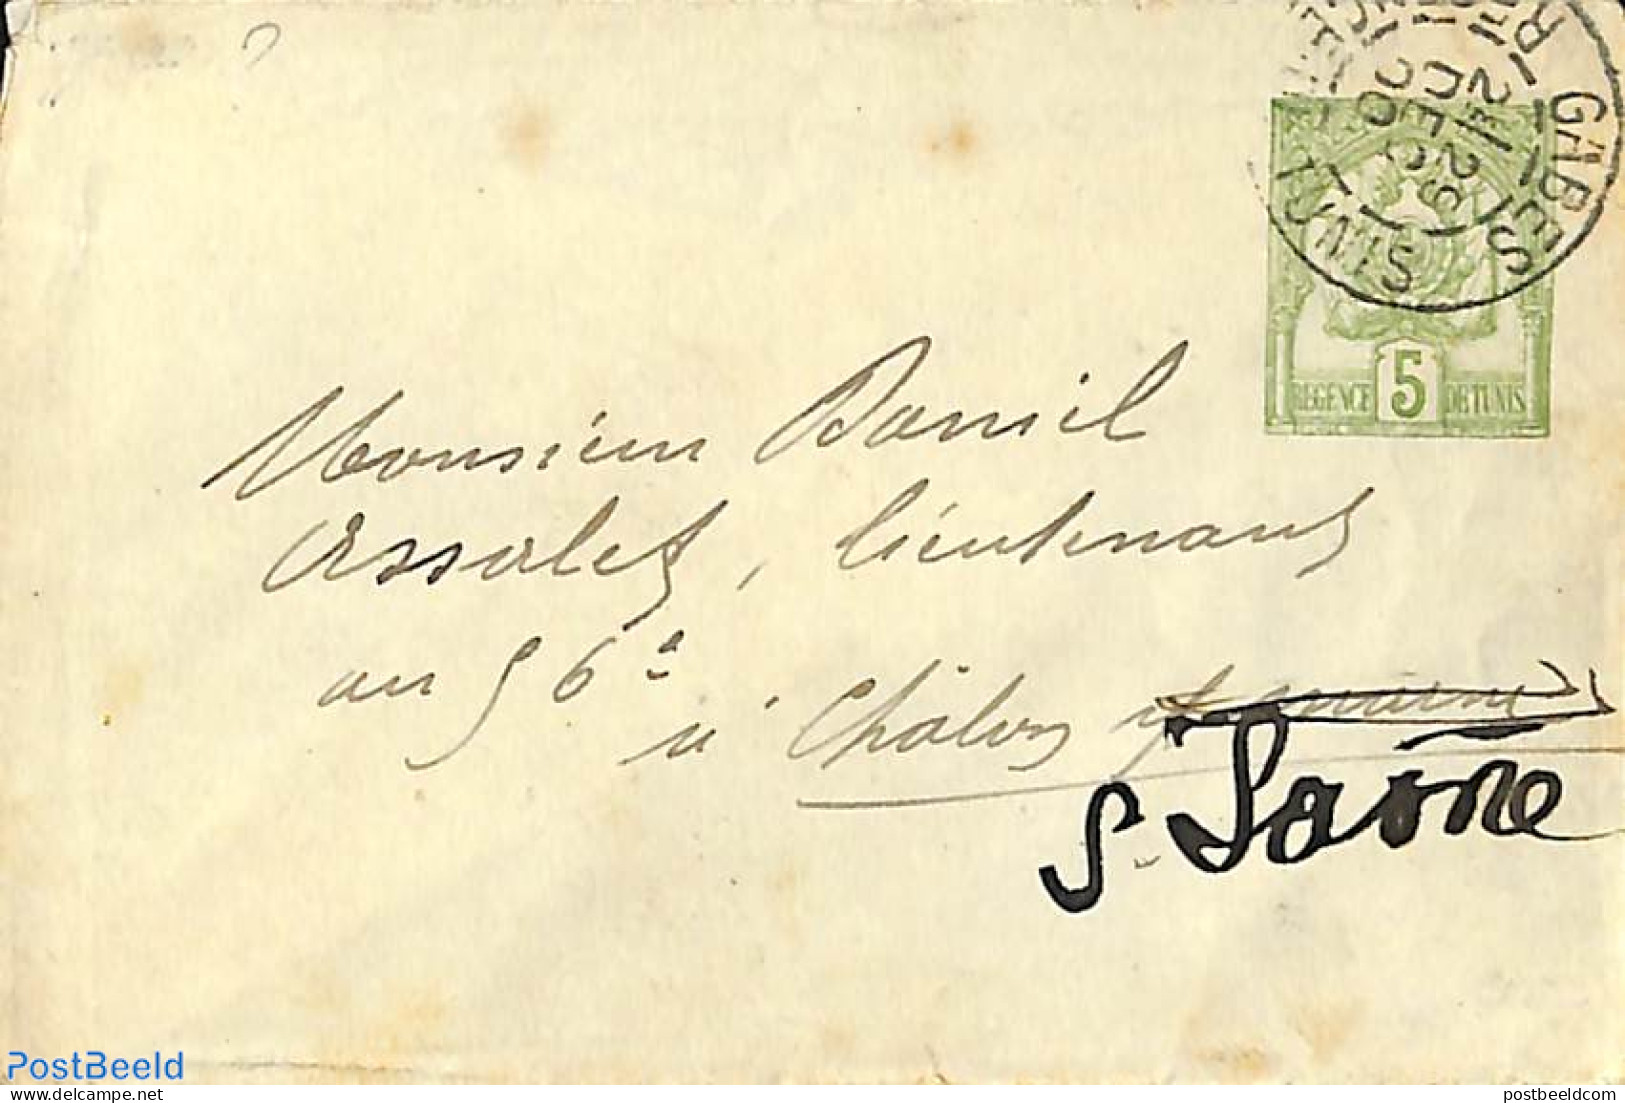 GABES
TUNIS
2E / 29
DEC
00
REGENCE 5 DE TUNIS
Monsieur Daniel
Assolet, lieutenant
au 56e
à Châlon
s- Saône
PostBeeld
postbeeldcom